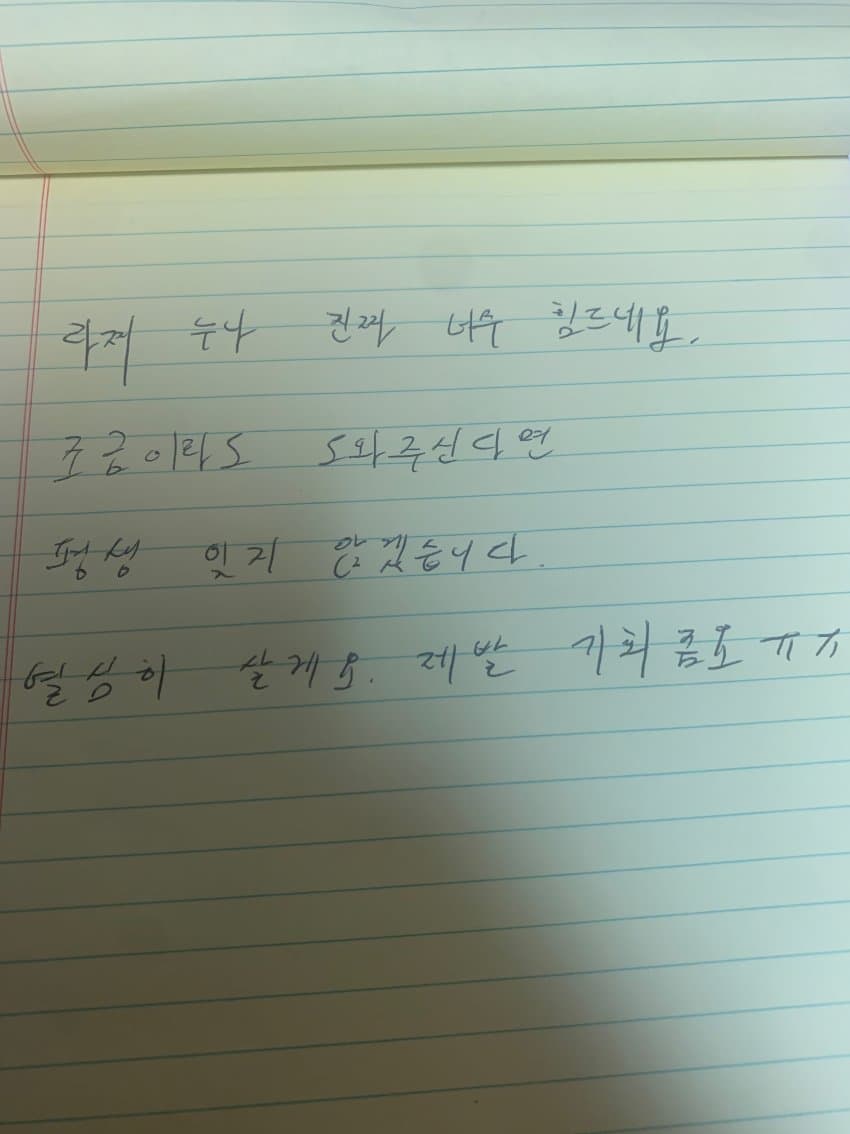 라찌 누나 진짜 너무 힘드네요.
조금이라도 도와주신다면
평생 잊지 않겠습니다.
열심히 살게요. 제발 기회좀요 ㅠㅠ